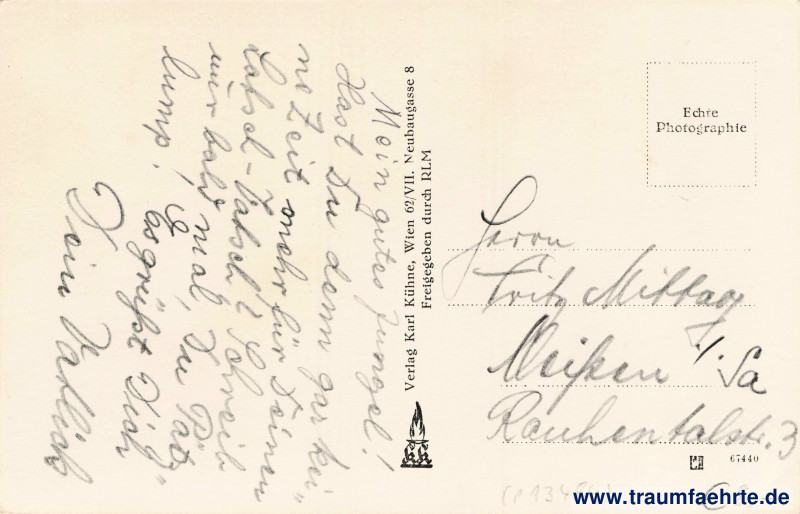 Mein gutes Jungel!
Hast Du denn gar kei-
ne Zeit mehr für Deinen
Latsch-Tatsch? Schreib
nur bald mal, Du
lump!
Es grüßt Dich
Dein
Verlag Karl Kühne, Wien 62/VII. Neubaugasse 8
Freigegeben durch RLM
Echte
Photographie
Herrn
Fritz Mittag
Meißen / Sa
Rauhentalstr. 3
67440
www.traumfaehrte.de